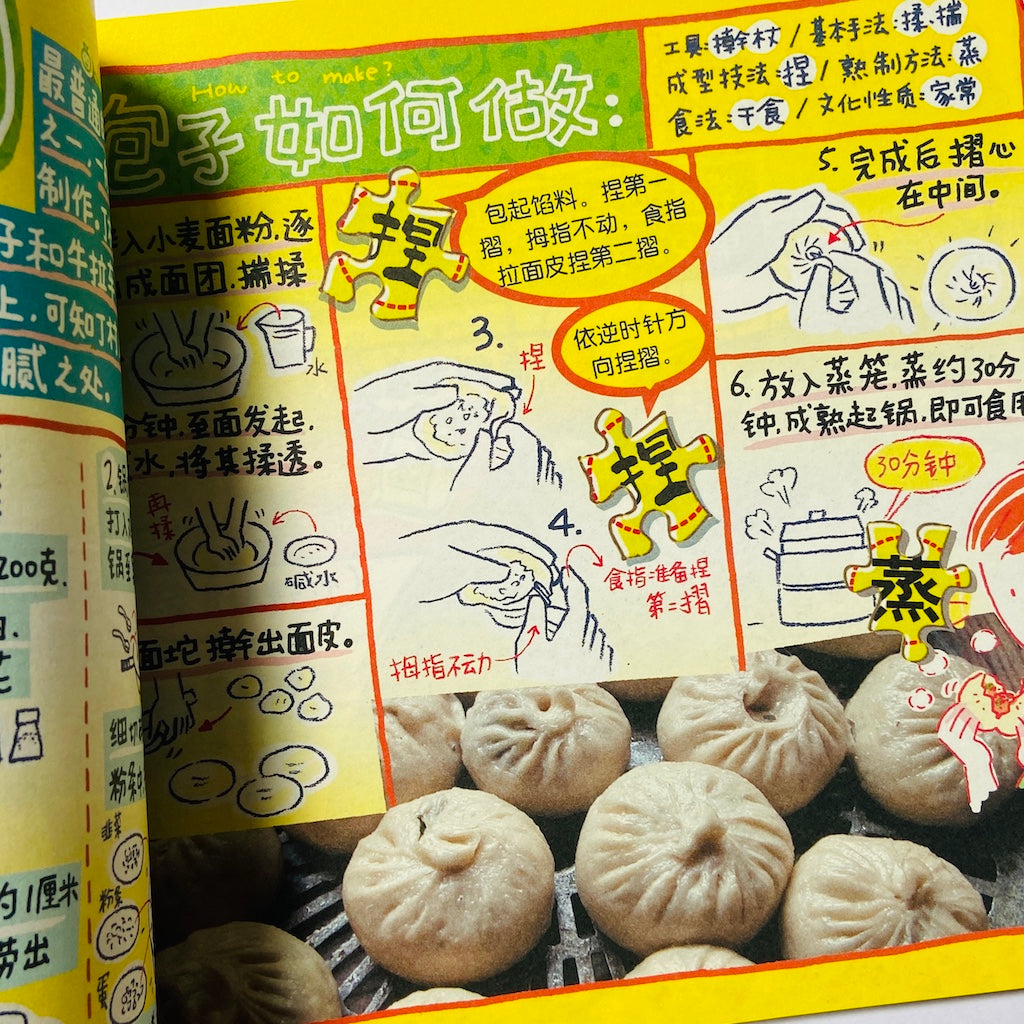 最普通
之一，
制作，
子和牛拉
上，可知
腻之处。
200克，
2.
打入
细切
粉条
韭菜
粉条
蛋
约1厘米
劳出
How to make?
包子如何做：
工具：擀杖 / 基本手法：揉、揣
成型技法：捏 / 熟制方法：蒸
食法：干食 / 文化性质：家常
入小麦面粉，逐
成面团，揣揉
水
分钟，至面发起，
水，将其揉透。
再揉
碱水
面坨擀出面皮。
捏
包起馅料。捏第一
摺，拇指不动，食指
拉面皮捏第二摺。
3.
捏
依逆时针方
向捏摺。
捏
4.
食指准备捏
第二摺
拇指不动
5.完成后摺心
在中间。
6.放入蒸笼，蒸约30分
钟，成熟起锅，即可食用
30分钟
蒸